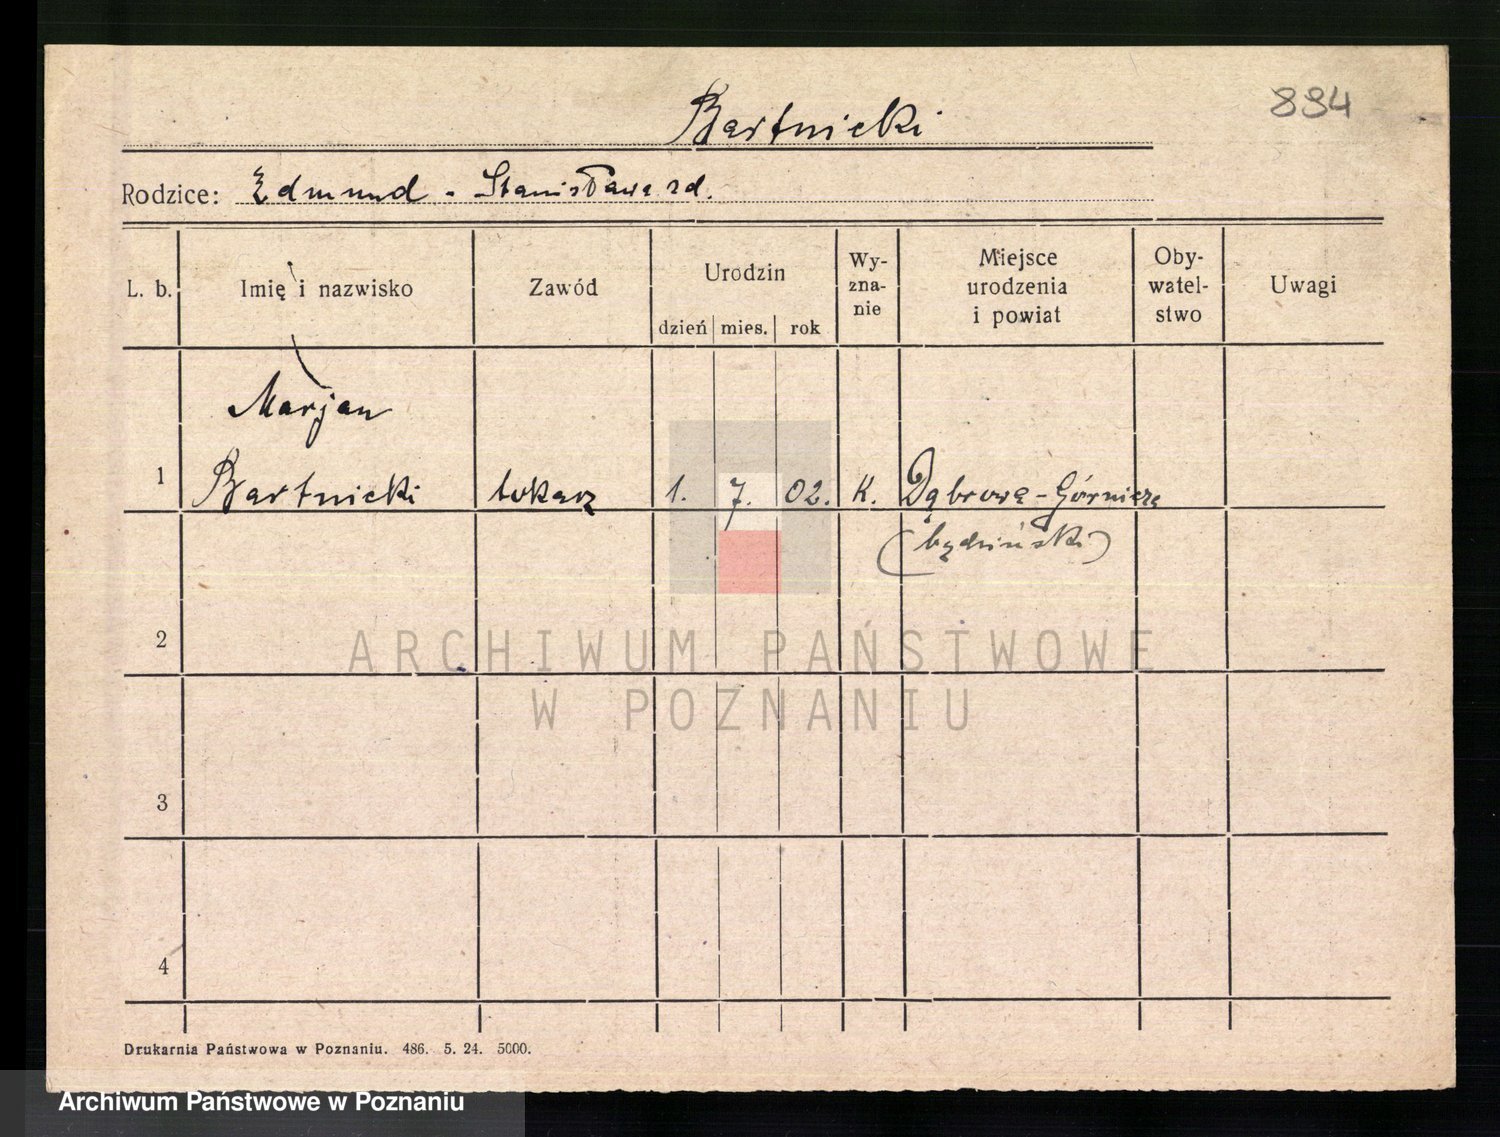 894
Bartnicki
Rodzice: Edmund - Stanisława zd.
L. b.
Imię i nazwisko
Zawód
Urodzin
dzień mies. rok
Wy-
zna-
nie
Miejsce
urodzenia
i powiat
Oby-
watel-
stwo
Uwagi
Marjan
1 Bartnicki tokarz 1. 7. 02. K. Dąbrowa-Górnicza
(będziński)
2
ARCHIWUM PAŃSTWOWE
W POZNANIU
3
4
Drukarnia Państwowa w Poznaniu. 486. 5. 24. 5000.
Archiwum Państwowe w Poznaniu